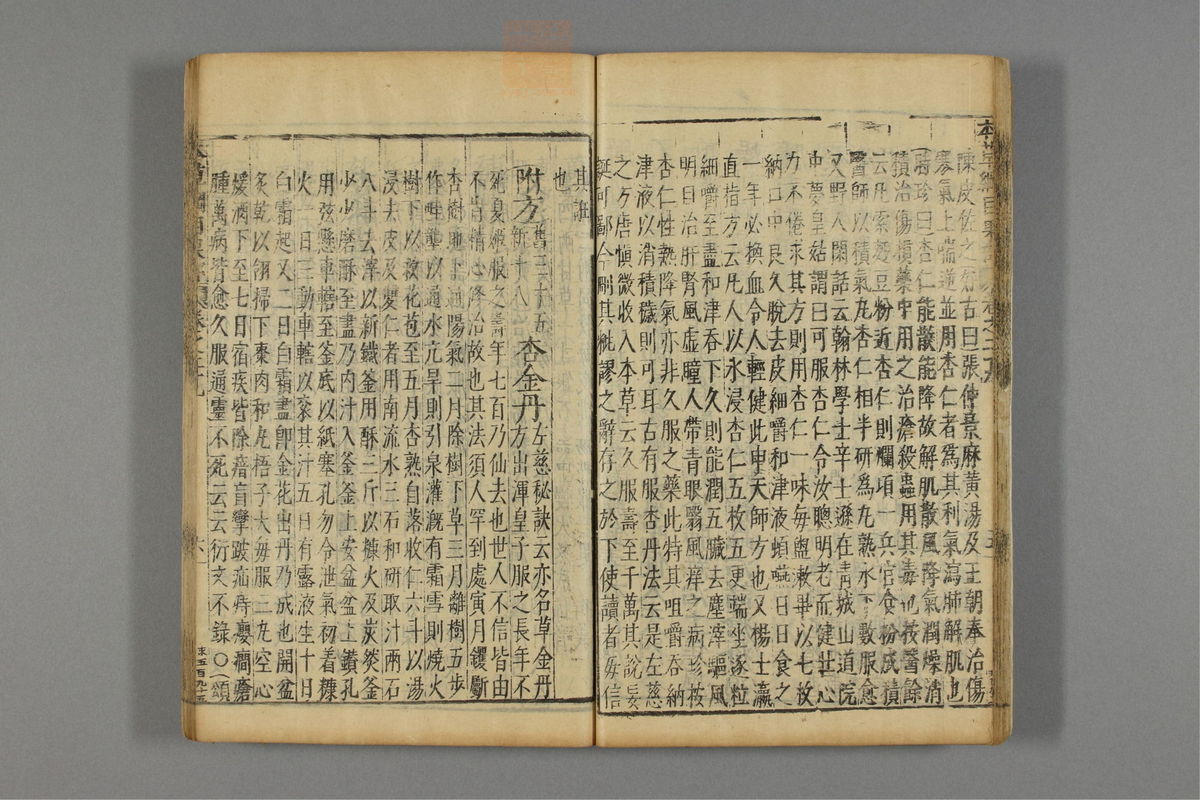 陳皮佐之好古曰張仲景麻黃湯及王朝奉治傷
寒氣上喘逆並用杏仁者爲其利氣瀉肺解肌也
時珍曰杏仁能散能降故解肌散風降氣潤燥消
積治傷損藥中用之治瘡殺蟲用其毒也按醫餘
云凡索麪豆粉近杏仁則爛頃一兵官食粉成積
醫師以積氣丸杏仁相半研爲丸熟水下數服愈
又野人閑話云翰林學士辛士遜在青城山道院
中夢皇姑謂曰可服杏仁令汝聰明老而健壯心
力不倦求其方則用杏仁一味每盥漱畢以七枚
納口中良久脫去皮細嚼和津液頓嚥日日食之
一年必換血令人輕健此申天師方也又楊士瀛
直指方云凡人以水浸杏仁五枚五更端坐逐粒
細嚼至盡和津吞下久則能潤五臟去塵滓驅風
明目治肝腎風虛瞳人帶青眼翳風痒之病珍按
杏仁性熱降氣亦非久服之藥此特其咀嚼吞納
津液以消積穢則可耳古有服杏丹法云是左慈
之方唐愼微收入本草云久服壽至千萬其說妄
誕可鄙今刪其紕謬之辭存之於下使讀者毋信
其誑
也
附方舊三十五新十八杏金丹左慈秘訣云亦名草金丹
方出渾皇子服之長年不
死夏姬服之壽年七百乃仙去也世人不信皆由
不肯精心修治故也其法須人罕到處寅月钁斸
杏樹地下通陽氣二月除樹下草三月離樹五步
作畦壟以通水亢旱則引泉灌漑有霜雪則燒火
樹下以救花苞至五月杏熟自落收仁六斗以湯
浸去皮及雙仁者用南流水三石和研取汁兩石
八斗去滓以新鐵釜用酥三斤以糠火及炭燃釜
少少磨酥至盡乃內汁入釜釜上安盆盆上鑽孔
用弦懸車轄至釜底以紙塞孔勿令泄氣初着糠
火一日三動車轄以衮其汁五日有露液生十日
白霜起又二日白霜盡卽金花出丹乃成也開盆
炙乾以翎掃下棗肉和丸梧子大每服三丸空心
煖酒下至七日宿疾皆除瘖盲攣跛疝痔癭癇瘡
腫萬病皆愈久服通靈不死云云衍文不錄○頌